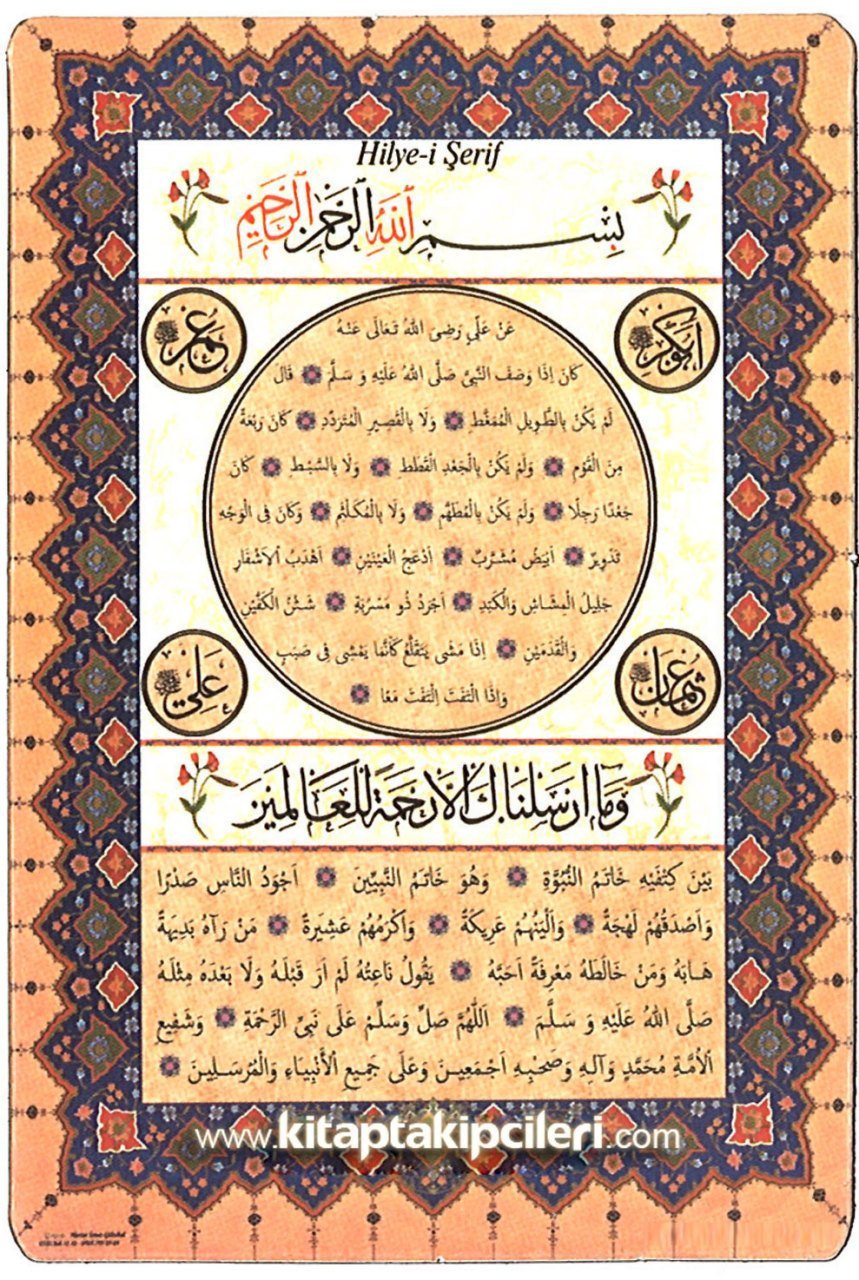 Hilye-i Şerif
بِسْمِ اللهِ الرَّحْمٰنِ الرَّحِيمِ
ابو بكر
عُمَر
عَنْ عَلِّيٍ رَضِىَ اللهُ تَعَالَى عَنْهُ
كَانَ اِذَا وَصَفَ النَّبِىَّ صَلَّى اللهُ عَلَيْهِ وَ سَلَّمَ قَالَ
لَمْ يَكُنْ بِالطَّوِيلِ الْمُمَغَّطِ وَلَا بِالْقَصِيرِ الْمُتَرَدِّدِ كَانَ رَبْعَةً
مِنَ الْقَوْمِ وَلَمْ يَكُنْ بِالْجَعْدِ الْقَطَطِ وَلَا بِالسَّبْطِ كَانَ
جَعْدًا رَجِلًا وَلَمْ يَكُنْ بِالْمُطَهَّمِ وَلَا بِالْمُكَلْثَمِ وَكَانَ فِى الْوَجْهِ
تَدْوِيرٌ اَبْيَضُ مُشْرَبٌ اَدْعَجُ الْعَيْنَيْنِ اَهْدَبُ اْلاَشْفَارِ
جَلِيلُ الْمِشَاشِ وَالْكَتَدِ اَجْرَدُ ذُو مَسْرُبَةٍ شَثْنُ الْكَفَّيْنِ
وَالْقَدَمَيْنِ اِذَا مَشَى يَتَقَلَّعُ كَاَنَّمَا يَمْشِى فِى صَبَبٍ
وَاِذَا الْتَفَتَ اِلْتَفَتَ مَعًا
عُثْمَان
عَلِي
وَمَا اَرْسَلْنَاكَ اِلَّا رَحْمَةً لِلْعَالَمِينَ
بَيْنَ كَتْفَيْهِ خَاتَمُ النُّبُوَّةِ وَهُوَ خَاتَمُ النَّبِيِّينَ اَجْوَدُ النَّاسِ صَدْرًا
وَاَصْدَقُهُمْ لَهْجَةً وَاَلْيَنُهُمْ عَرِيكَةً وَاَكْرَمُهُمْ عَشِيرَةً مَنْ رَآهُ بَدِيهَةً
هَابَهُ وَمَنْ خَالَطَهُ مَعْرِفَةً اَحَبَّهُ يَقُولُ نَاعِتُهُ لَمْ اَرَ قَبْلَهُ وَلَا بَعْدَهُ مِثْلَهُ
صَلَّى اللهُ عَلَيْهِ وَ سَلَّمَ اَللّٰهُمَّ صَلِّ وَسَلِّمْ عَلَى نَبِىِّ الرَّحْمَةِ وَشَفِيعِ
اْلاُمَّةِ مُحَمَّدٍ وَآلِهِ وَصَحْبِهِ اَجْمَعِينَ وَعَلَى جَمِيعِ اْلأَنْبِيَاءِ وَالْمُرْسَلِينَ
www.kitaptakipcileri.com